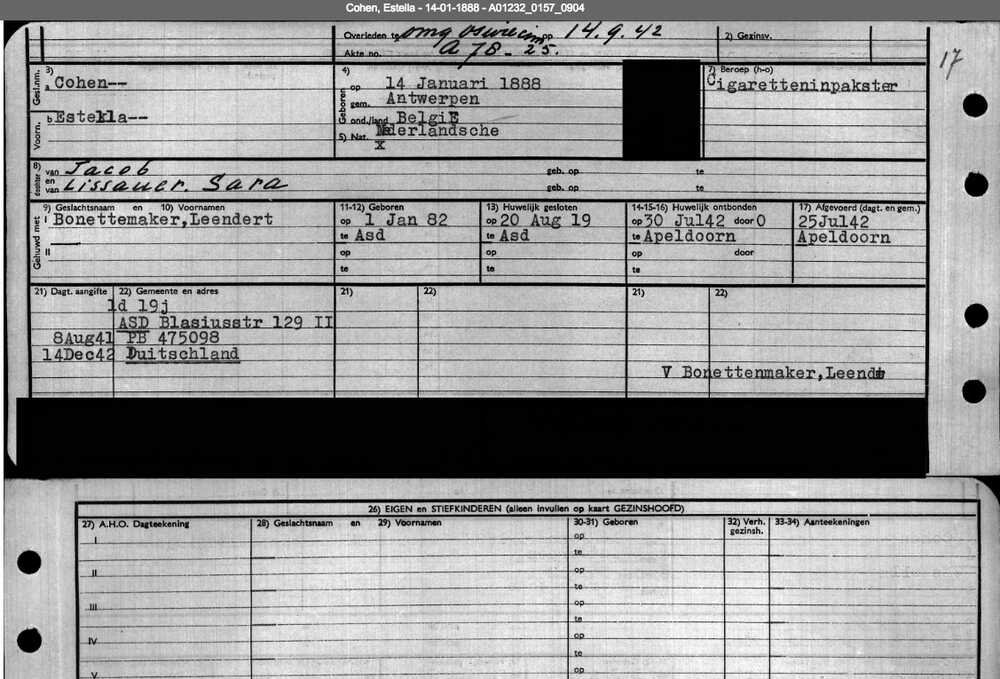 Cohen, Estella - 14-01-1888 - A01232_0157_0904
Overleden te omg Oswiecim op 14.9.42
2) Gezinsv.
Akte no. A 78 - 25.
17
Gesl.nm. 3) a Cohen--
4) Geboren op 14 Januari 1888
gem. Antwerpen
7) Beroep (h-o)
Cigaretteninpakster
Voorn. b Estella--
ond./land België
5) Nat. Nederlandsche
X
dochter 8) van Jacob geb. op te
en van Lissauer. Sara geb. op te
Gehuwd met 9) Geslachtsnaam en 10) Voornamen
11-12) Geboren
13) Huwelijk gesloten
14-15-16) Huwelijk ontbonden
17) Afgevoerd (dagt. en gem.)
I Bonettemaker,Leendert
op 1 Jan 82
op 20 Aug 19
op 30 Jul42 door O
25Jul42
te Asd
te Asd
te Apeldoorn
Apeldoorn
II
op
op
op door
te
te
te
21) Dagt. aangifte 22) Gemeente en adres
21) 22)
21) 22)
1d 19j
ASD Blasiusstr 129 II
8Aug41 PB 475098
14Dec42 Duitschland
V Bonettenmaker,Leendt
26) EIGEN en STIEFKINDEREN (alleen invullen op kaart GEZINSHOOFD)
27) A.H.O. Dagteekening
28) Geslachtsnaam en 29) Voornamen
30-31) Geboren
32) Verh. gezinsh.
33-34) Aanteekeningen
I op
te
II op
te
III op
te
IV op
te
V op